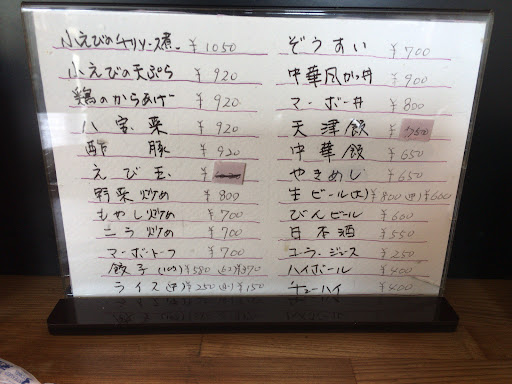 小えびのチリソース煮 ¥1050
小えびの天ぷら ¥920
鶏のからあげ ¥920
八宝菜 ¥920
酢豚 ¥920
えび玉 ¥
野菜炒め ¥800
もやし炒め ¥700
ニラ炒め ¥700
マーボトーフ ¥700
餃子(10コ)¥580 (6コ)¥370
ライス(中)¥250 (小)¥150
ぞうすい ¥700
中華風カツ丼 ¥900
マーボー丼 ¥800
天津飯 ¥750
中華飯 ¥650
やきめし ¥650
生ビール(大)¥800(中)¥600
びんビール ¥600
日本酒 ¥550
コーラ・ジュース ¥250
ハイボール ¥400
チューハイ ¥400